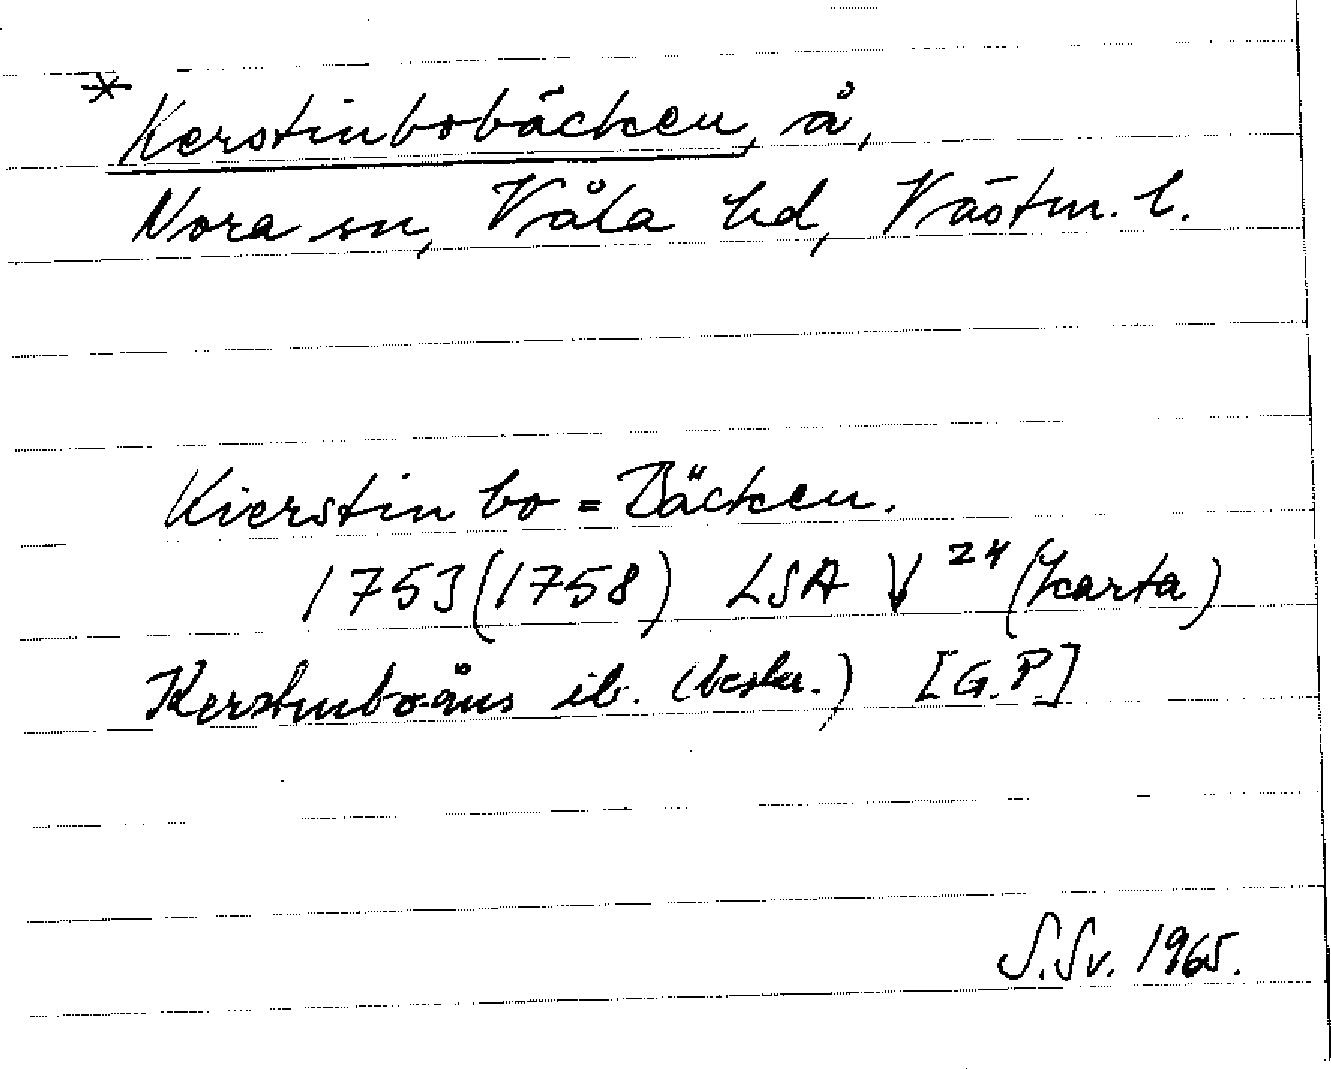 *Kerstinbobäcken, å,
Nora sn, Våla hd, Västm. l.
Kierstin bo = Bäcken.
1753 (1758) LSA V 24 (karta)
Kerstinbo-åns ib. (beskr.) [G.P.]
S.Sv. 1965.